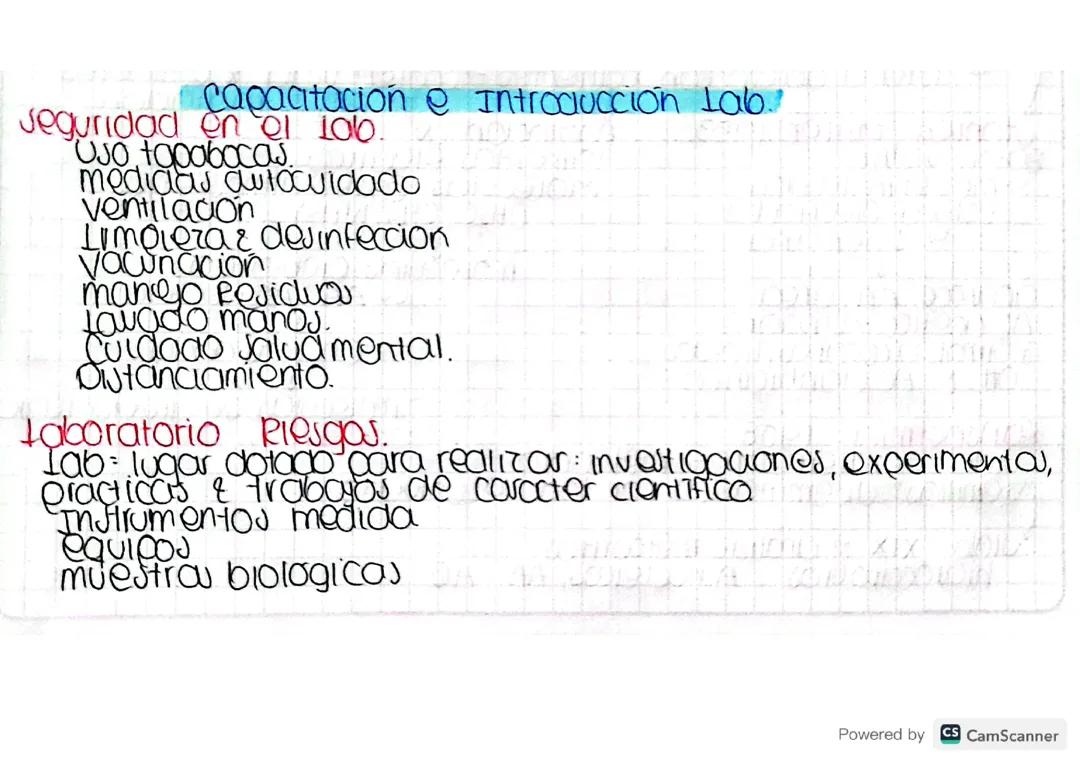 Capacitación e Introducción Lab.
Seguridad en el lab.
Uso tapabocas.
medidas autocuidado
ventilación
Limpieza & desinfección
vacunación
manejo Residuos
Lavado manos.
Cuidado salud mental.
Distanciamiento.
Laboratorio Riesgos.
Lab = lugar dotado para realizar: investigaciones, experimentos,
practicas & trabajos de caracter científica
Instrumentos medida
equipos
muestras biologicas
Powered by CS CamScanner